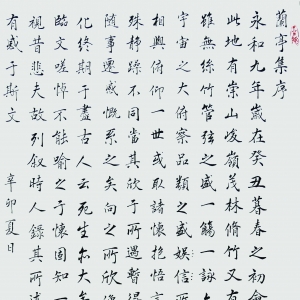 蘭亭集序
永和九年歲在癸丑暮春之初會
此地有崇山峻嶺茂林脩竹又有
雖無絲竹管弦之盛一觴一詠
宇宙之大俯察品類之盛娛信
相與俯仰一世或取諸懷抱悟言
殊靜躁不同當其欣於所遇
隨事遷感慨系之矣向之所欣
化終期于盡古人云死生亦大矣
臨文嗟悼不能喻之于懷固知一
視昔悲夫故列叙時人錄其所述
有感于斯文
辛卯夏日